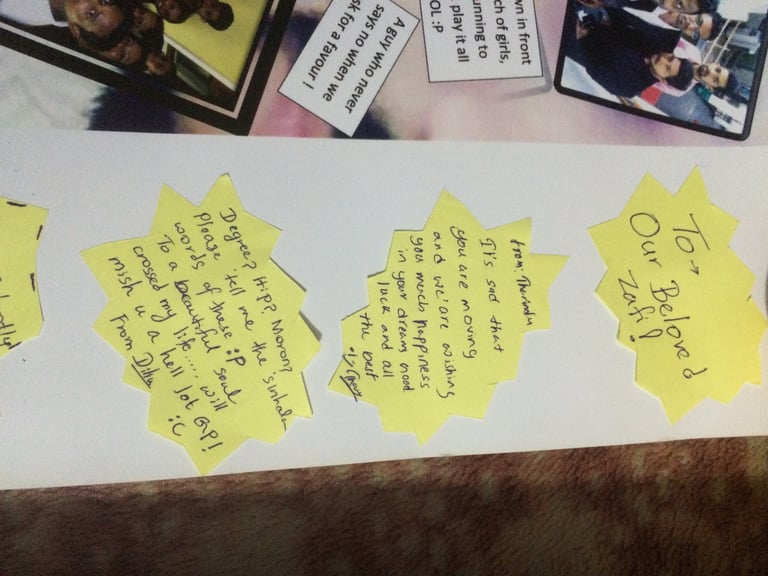 A guy who never
says no when we
sk for a favour !
wn in front
ch of girls,
unning to
, play it all
OL :P
To →
Our Beloved
Zafi!
from: Tharindu
It's sad that
you are moving
and we're are wishing
you much Happiness
in your dream road
luck and all
the best
Degree? Hipp? Moron?
Please tell me the 'sinhala
words of these :P
To a beautiful soul
crossed my life.... will
mish u a hell lot GP!
From Ditha :C